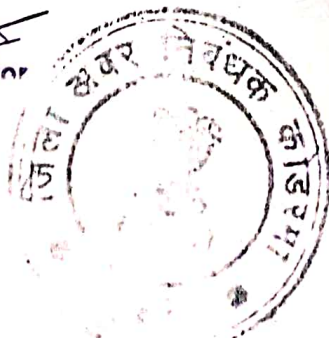 OF
जिला अवर निबंधक कोडरमा